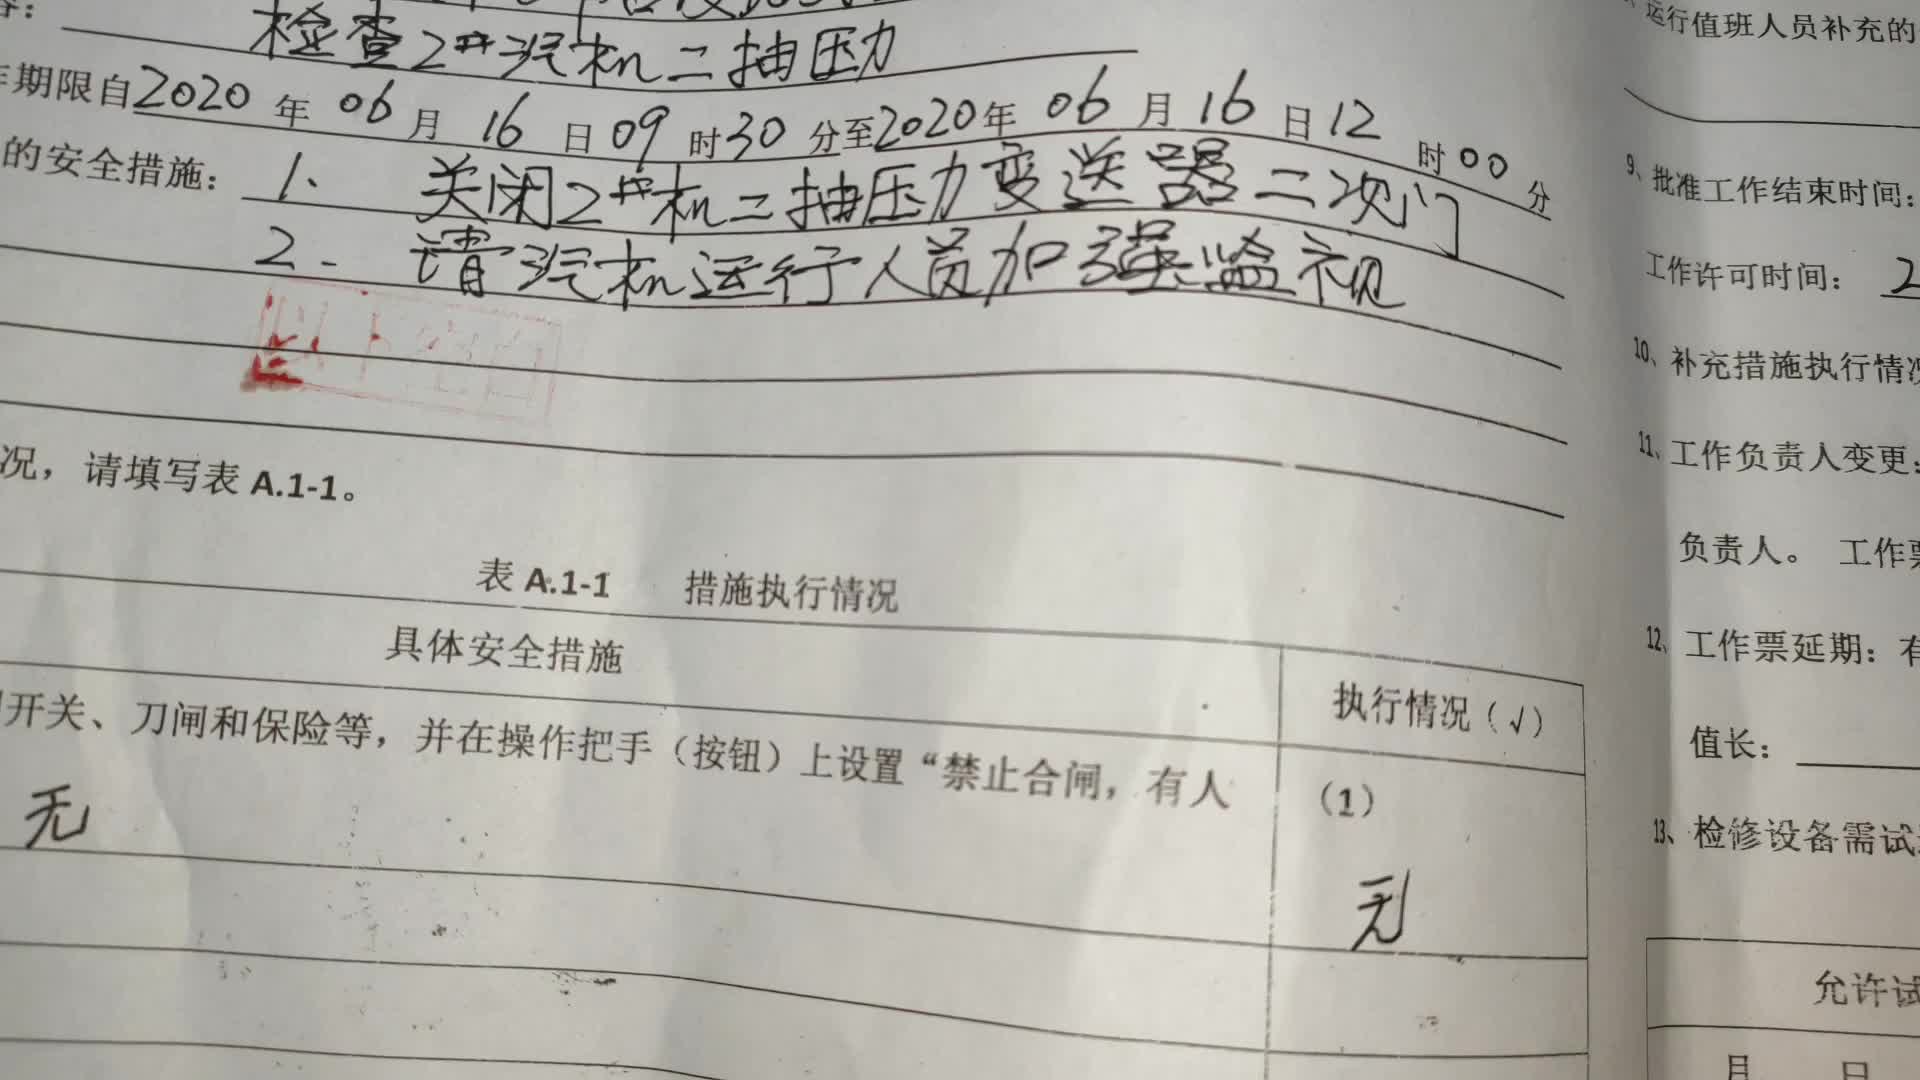 容:
检查2#汽机二抽压力
作期限自2020年06月16日09时30分至2020年06月16日12时00分
的安全措施: 1、关闭2#机二抽压力变送器二次门
2. 请汽机运行人员加强监视
以下空白
况，请填写表 A.1-1。
表 A.1-1 措施执行情况
具体安全措施 执行情况（√）
开关、刀闸和保险等，并在操作把手（按钮）上设置“禁止合闸，有人 （1）
无 无
运行值班人员补充的
9、批准工作结束时间:
工作许可时间: 2
10、补充措施执行情况
11、工作负责人变更:
负责人。 工作票
12、工作票延期: 有
值长:
13、检修设备需试
允许试
月 日